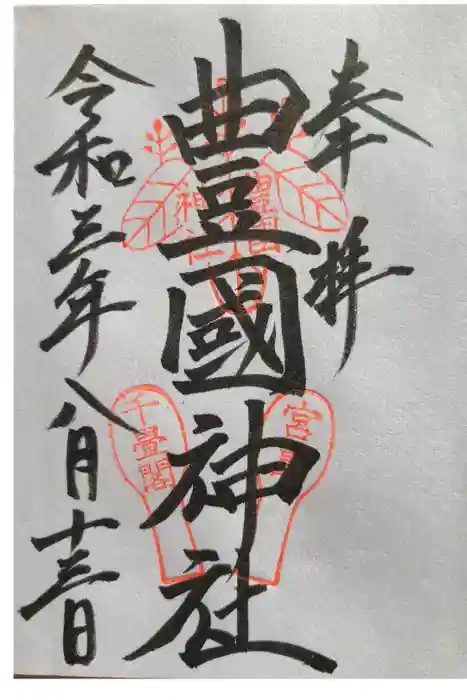 奉拝
豊國神社
令和三年八月十三日
千畳閣